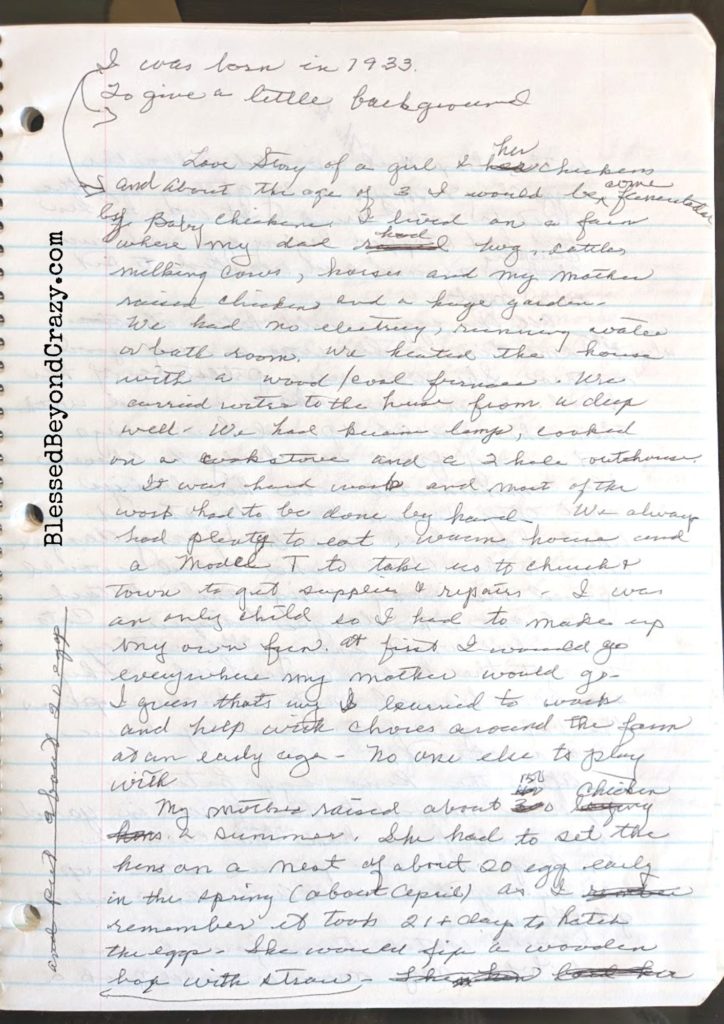 I was born in 1933.
To give a little background
Love Story of a girl & her chickens
and about the age of 3 I would be some
by Baby chickens. I lived on a farm
where my dad had hog, cattle,
milking cows, horses and my mother
raised chickens and a huge garden.
We had no electricy, running water
or bath room. We heated the house
with a wood/coal furnace. We
carried water to the house from a deep
well. We had lamp, cooked
on a cookstove and a 2 hole outhouse.
It was hard work and most of the
work had to be done by hand. We always
had plenty to eat, warm house and
a Model T to take us to church &
town to get supplies & repairs. I was
an only child so I had to make up
my own fun. At first I would go
everywhere my mother would go.
I guess thats why I learned to work
and help with chores around the farm
at an early age - No one else to play
with
My mother raised about 150 chicken
hens a summer. She had to set the
hens on a nest of about 20 egg early
in the spring (about April) as I remember
remember it took 21+ day to hatch
the eggs. She would fix a wooden
box with straw.
and put about 20 egg
BlessedBeyondCrazy.com